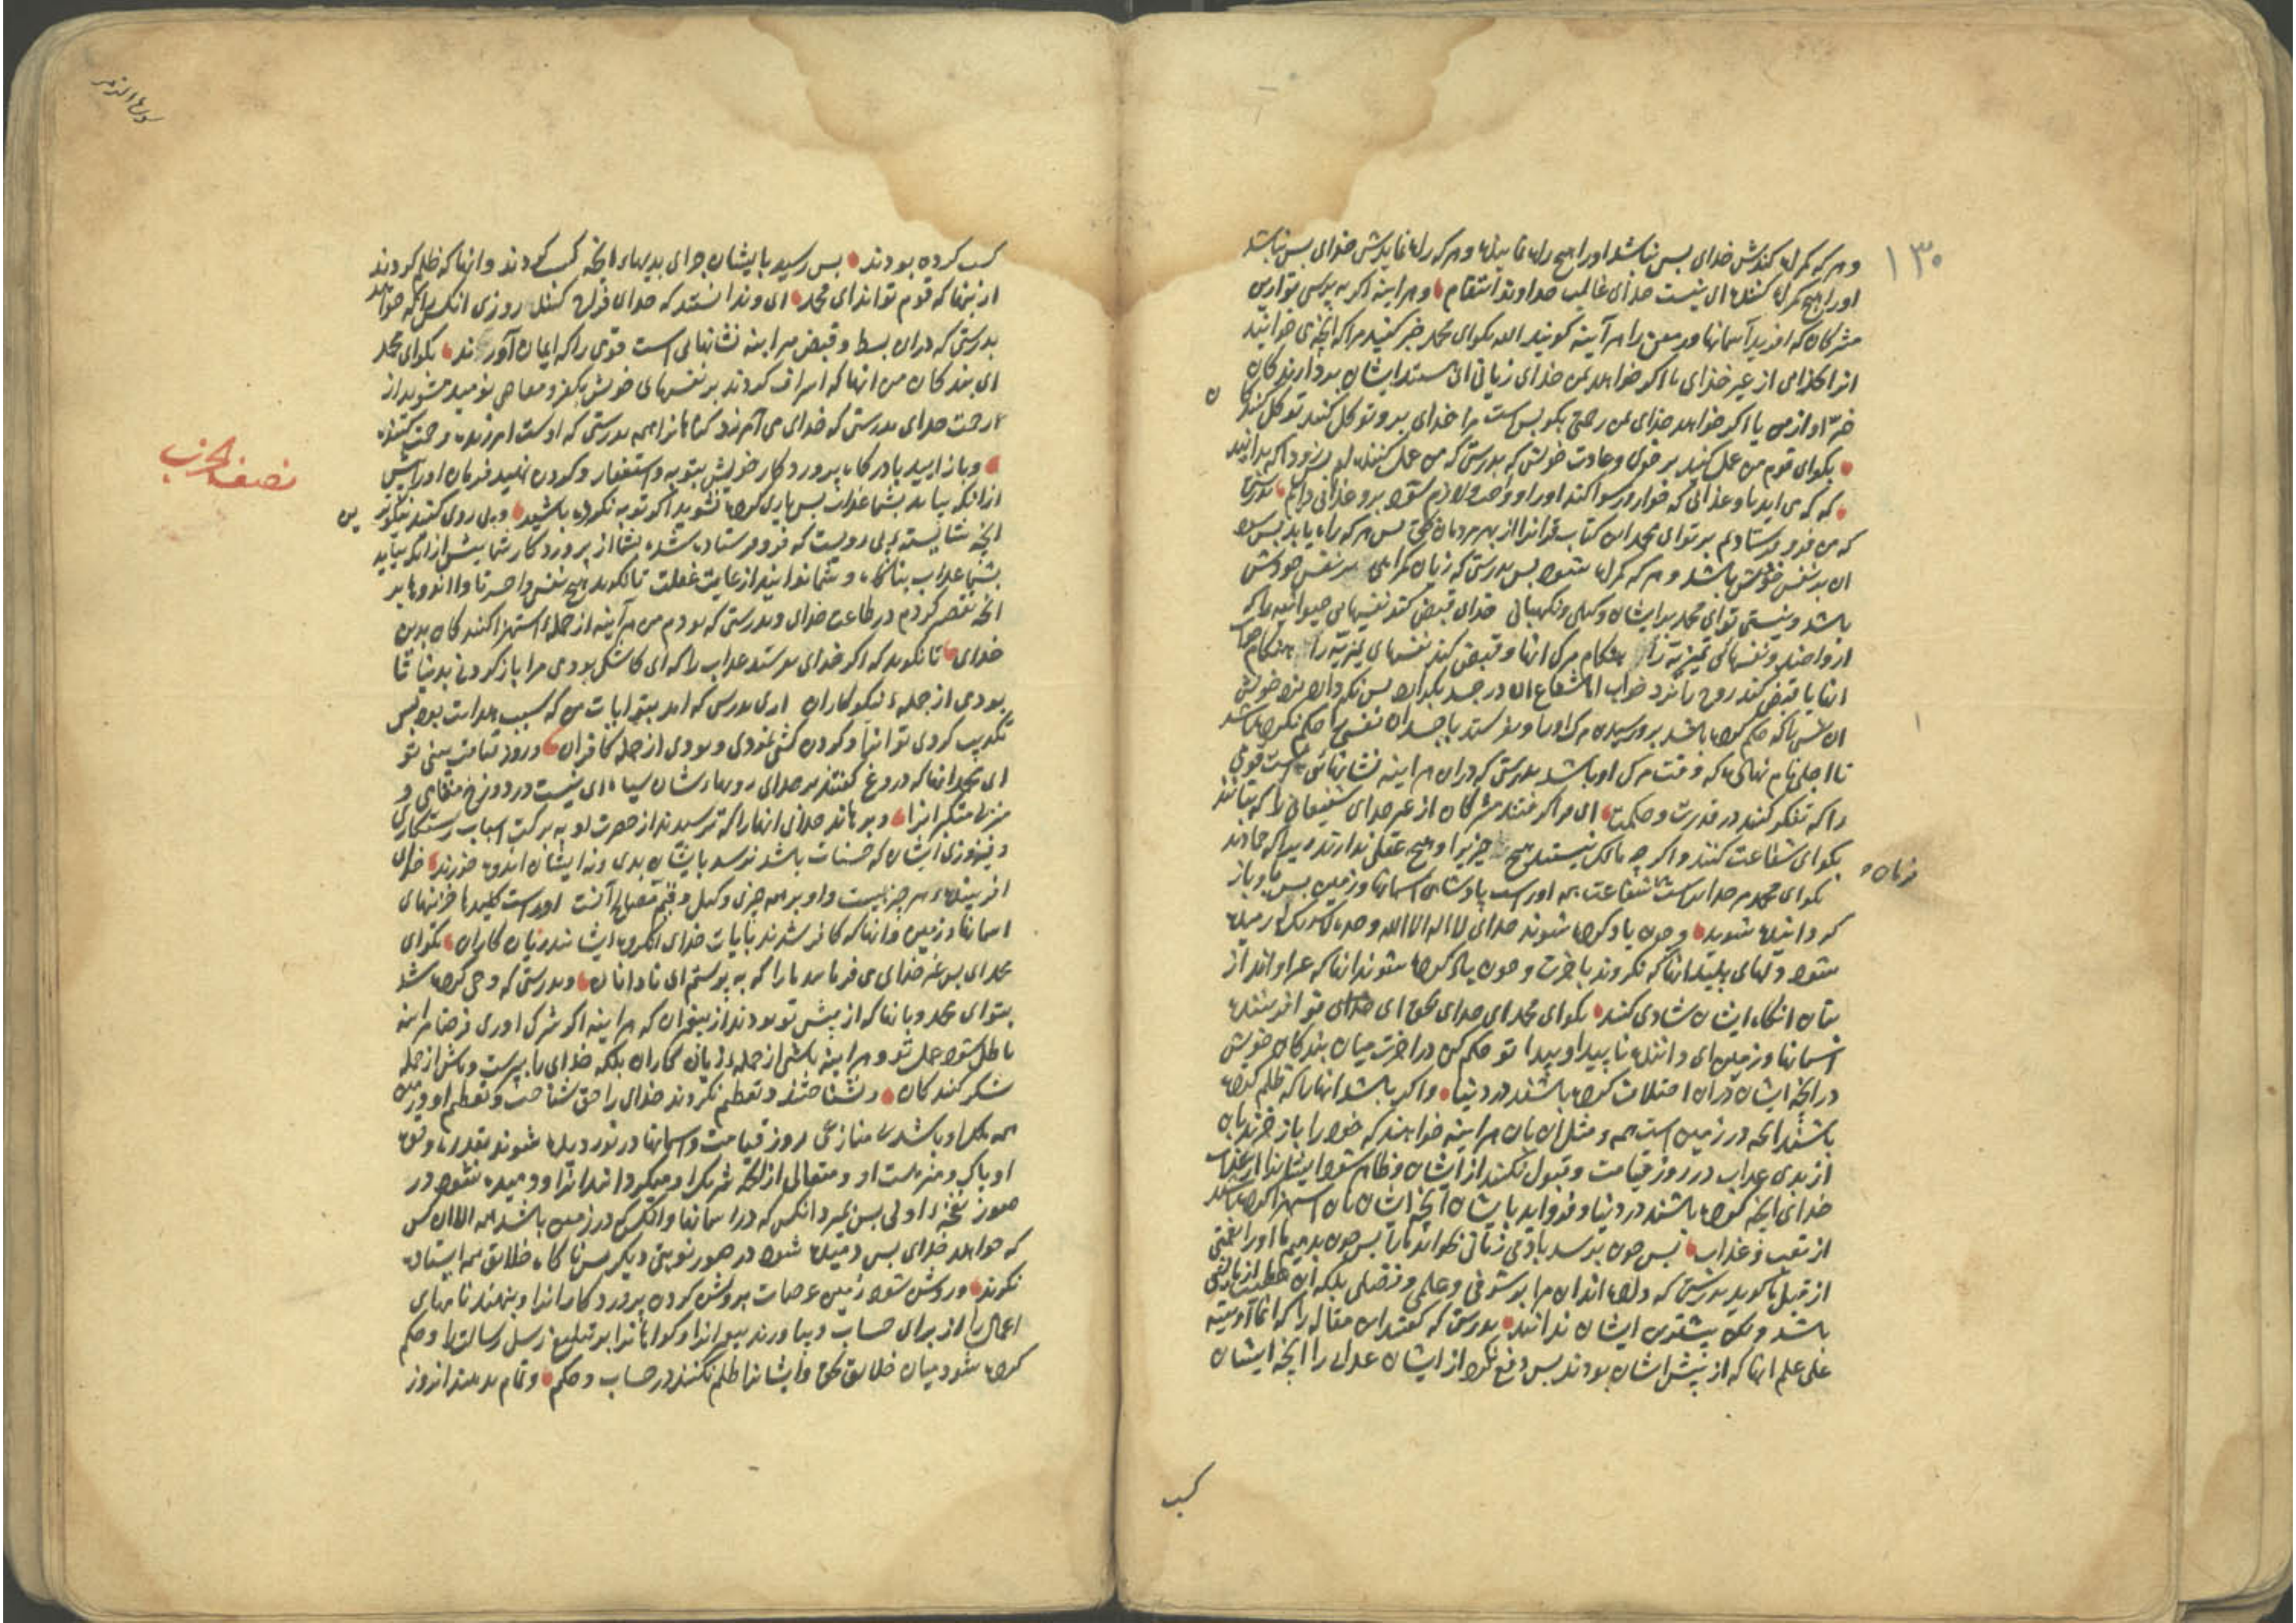 ۱۳۰
و هر که کمراه کندش خدای پس نباشد اورا هیچ راه نماینده و هر که راه نمایدش خدای پس نباشد
اورا هیچ کمراه کننده ای نیست خدای غالب خداوند انتقام و هر اینه اکر به پرسی تو ازین
مشرکان که افرید آسمانها و زمین را هر آینه کویند الله بکوای محمد خبر کنید مرا که آنچه می خوانید
انرا از غیر خدای اکر خواهد بمن خدای زیانی ایشان بردارندکان
ضرّ او از من یا اکر خواهد خدای بمن رحمتی بکو بس است مرا خدای برو توکل کنند توکل کنندکان
بکوای قوم من عمل کنید بر خوی و عادت خویش که بدرستی که من عمل کننده ام پس زود که بدانید
که که می اید باو عذابی که خوار و رسوا کند اورا و واجب و لازم شود برو عذابی دایم بدرستی
که من فرو فرستادم بر توای محمد این کتاب قرانرا از بهر مردمان بحق پس هر که راه یابد پس سود
ان بر نفس خویش باشد و هر که کمراه شود پس بدرستی که زیان کمراهی بر نفس خودش
باشد و نیستی توای محمد بر ایشان وکیلی و نکهبانی خدای قبض کند نفسهای حیوانیه را که
ارواحند و نفسهای تمیزیه را هنکام مرک انها و قبض کند نفسهای تمیزیه را هنکام خواب
انها یا قبض کند روح را نزد خواب اما شعاع ان در جسد بکذارد پس نکه دارد نزد خویش
ان نفسی را که حکم کرده باشد بر رسیدن مرک او را و بفرستد باجسدان نفسی را حکم نکرده باشد
تا اجلی نام نهاده که وقت مرک او باشد بدرستی که دران هر اینه نشانهائی است قومی
را که تفکر کنند در قدرت و حکمت ای فرا کرفتند مشرکان از غیر خدای شفیعانی را که بتانند
بکوای شفاعت کنند و اکر چه مالک نیستند هیچ چیزیرا و هیچ عقلی ندارند که جمادند
بکوای محمد مر خدایراست شفاعت همه اوراست پادشاهی اسمانها و زمین پس باو باز
کردانیده شوید و چون یاد کرده شوند خدای لا اله الا الله وحده لا شریک له رمیده
شود دلهای پلید انها که نکروند باخرت و چون یاد کرده شوند انها که غیر او اند از
بتان انکاه ایشان شادی کنند بکوای محمد ای خدای بحق ای خدای تو افریننده
اسمانها و زمین ای داننده ناپیدا و پیدا تو حکم کن در اخرت میان بندکان خویش
در انچه ایشان دران اختلاف کرده باشند در دنیا و اکر باشد انهارا که ظلم کرده
باشند انچه در زمین است همه و مثل ان بان هر اینه خواهند که خود را باز خرند بان
از بدی عذاب در روز قیامت و قبول نکنند از ایشان و ظاهر شود ایشانرا از عذاب
خدای انچه کرده باشند در دنیا و فرو اید بایشان انچه ایشان بان استهزا کرده باشند
از تعب و عذاب پس چون برسد بادمی زیانی بخواند مارا پس چون بدهیم ما اورا نعمتی
از قبل ما کوید بدرستی که داده اند ان مرا بر شرفی و علمی و فضلی بلکه ان
باشد ولکن بیشترین ایشان ندانند بدرستی که کفتند این مقاله را که انما اوتیته
علی علم انها که از پیش ایشان بودند پس دفع نکرد از ایشان عذاب را انچه ایشان
کسب
سورة الزمر
کسب کرده بودند پس رسید بایشان جزای بدیهاء انچه کسب کردند و انها که ظلم کردند
از انها که قوم تواند ای محمد ای و ندانستند که خدای فراخ کند روزی انکس را که خواهد
بدرستی که دران بسط و قبض هر اینه نشانهائی است قومی را که ایمان آورند بکوای محمد
ای بندکان من انها که اسراف کردند بر نفسهای خویش بکفر و معاصی نومید مشوید از
رحمت خدای بدرستی که خدای می آمرزد کناهانرا همه بدرستی که اوست امرزنده و رحمت کننده
و باز ایید بادرکاه پروردکار خویش بتوبه و استغفار و کردن نهید فرمان اورا پیش
ازانکه بیاید بشما عذاب پس یاری کرده نشوید اکر توبه نکرده باشید و پی روی کنید نیکوترین
انچه شایسته پی رویست که فرو فرستاده شده بشما از پروردکار شما پیش از انکه بیاید
بشما عذاب بناکاه و شما ندانید از غایت غفلت تا نکوید هیچ نفس واحسرتا وا اندوها بر
انچه تقصیر کردم در طاعت خدای و بدرستی که بودم من هر آینه از جمله استهزا کنندکان بدین
خدای تا نکوید که اکر خدای عذاب را که ای کاشکی بودی مرا باز کردنی بدنیا تا
بودی از جمله نیکوکاران اری بدرستی که امد بتو ایات من که سبب هدایت بود پس
تکذیب کردی تو انها و کردن کشی نمودی و بودی از جمله کافران و روز قیامت بینی تو
ای محمد انها که دروغ کفتند بر خدای رویهاء شان سیاه ای نیست در دوزخ مقامی و
منزلی متکبرانرا و برهاند خدای انهارا که ترسیدند از حضرت او به برکت اسباب رستکاری
و فیروزی ایشان که حسنات باشد نرسد بایشان بدی و نه ایشان اندوه خورند خدای
افریننده هر چیزیست و او بر همه چیزی وکیل و قیم مصالح آنست اوراست کلیدها خزینهای
اسمانها و زمین و انها که کافر شدند بایات خدای انکروه ایشانند زیان کاران بکوای
محمد ای پس غیر خدای می فرمایید مارا که به پرستم ای نادانان و بدرستی که وحی کرده شد
بتوای محمد و بانها که از پیش تو بودند از پیغمبران که هر اینه اکر شرک اوری فرضا هر اینه
باطل شود عمل تو و هر اینه باشی از جمله زیان کاران بلکه خدای را بپرست و باش از جمله
شکر کنندکان و نشناختند و تعظیم نکردند خدای را حق شناخت و تعظیم او و زمین
همه ملک او باشد بی منازعی روز قیامت و اسمانها در نوردیده شوند بقدرت و قوت
او پاک و منزهست او و متعالی از انچه شریک او میکردانند انرا و دمیده شود در
صور نفخه اولی پس بمیرد انکس که در اسمانها و انکس که در زمین باشد همه الا ان کس
که خواهد خدای پس دمیده شود در صور نوبتی دیکر پس ناکاه خلایق همه ایستاده
نکرند و روشن شود زمین عرصات بروشن کردن پروردکار انرا و بنهند نامهای
اعمال را از برای حساب و بیاورند پیغمبرانرا و کواهانرا بر تبلیغ رسل رسالت را و حکم
کرده شود میان خلایق بحق و ایشانرا ظلم نکنند در حساب و حکم و تمام بدهند انروز
نصف الحزب